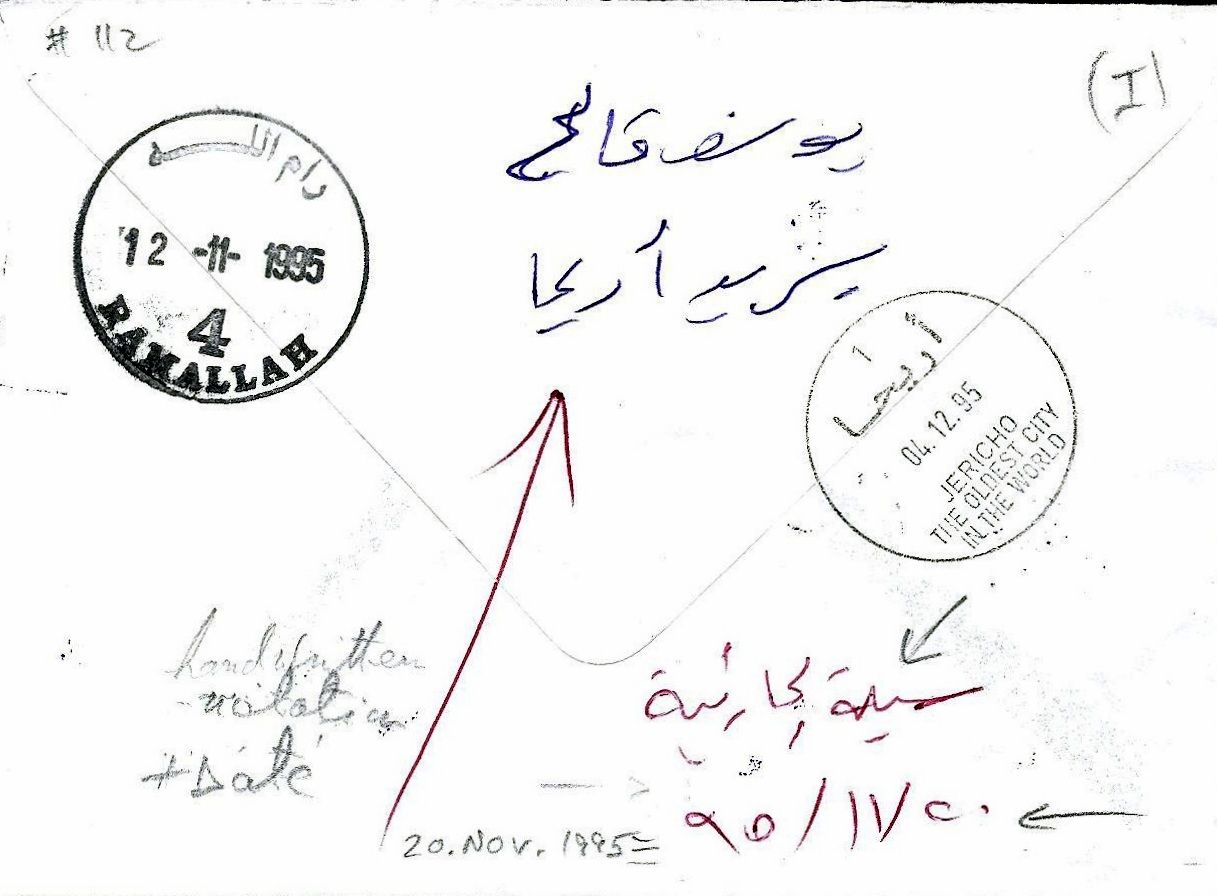 # 112
(I)
رام الله
12 -11- 1995
4
RAMALLAH
يوسف
بريد أريحا
أريحا
1
04.12.95
JERICHO
THE OLDEST CITY
IN THE WORLD
handwritten
notation
+ Date
سيلة الحارثية
20. NOV. 1995 =